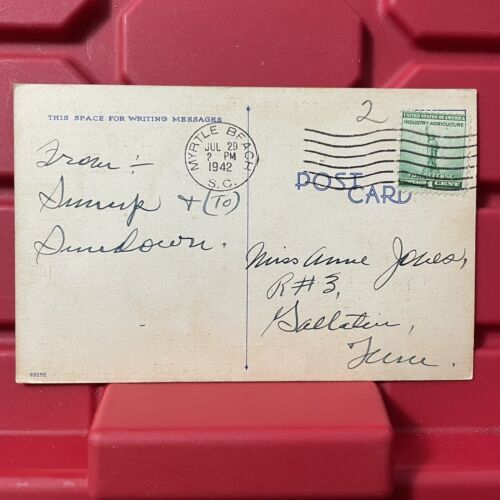 THIS SPACE FOR WRITING MESSAGES
From:-
Sunup & (To)
Sundown.
69255
2
MYRTLE BEACH
JUL 29
2 PM
1942
S.C.
UNITED STATES OF AMERICA
INDUSTRY AGRICULTURE
FOR DEFENSE
1 CENT
POST CARD
Miss Anne Jones,
R#3,
Gallatin,
Tenn.